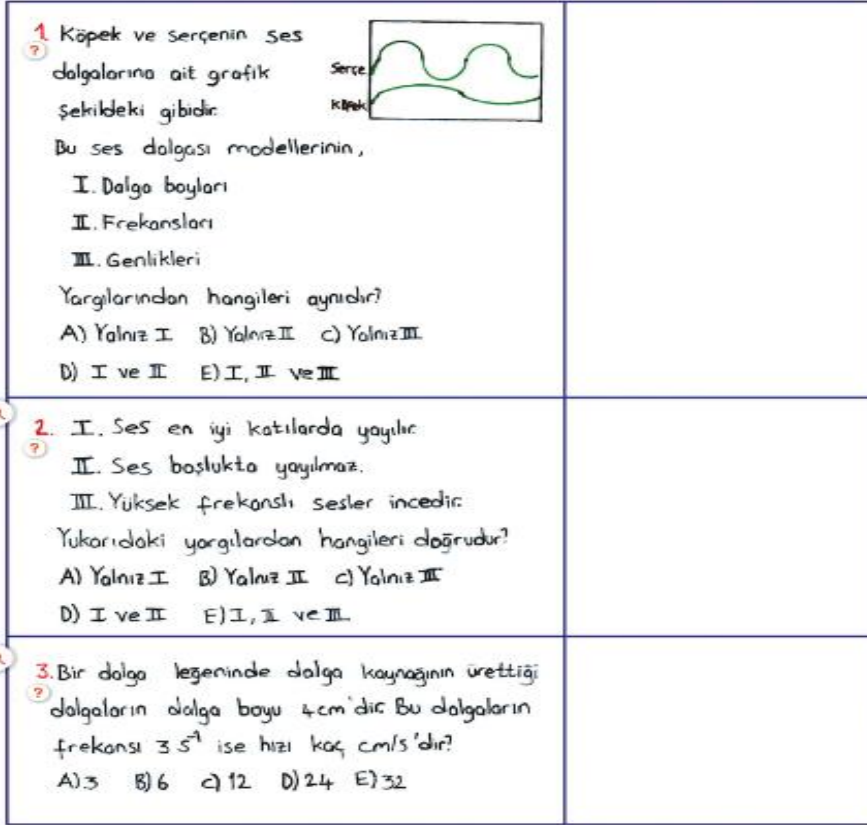 1. Köpek ve serçenin ses
dalgalarına ait grafik
şekildeki gibidir.
Serçe
Köpek
Bu ses dalgası modellerinin,
I. Dalga boyları
II. Frekansları
III. Genlikleri
Yargılarından hangileri aynıdır?
A) Yalnız I B) Yalnız II C) Yalnız III
D) I ve II E) I, II ve III
2. I. Ses en iyi katılarda yayılır.
II. Ses boşlukta yayılmaz.
III. Yüksek frekanslı sesler incedir.
Yukarıdaki yargılardan hangileri doğrudur?
A) Yalnız I B) Yalnız II C) Yalnız III
D) I ve II E) I, II ve III
3. Bir dalga leğeninde dalga kaynağının ürettiği
dalgaların dalga boyu 4cm'dir. Bu dalgaların
frekansı 3 s⁻¹ ise hızı kaç cm/s'dir?
A) 3 B) 6 C) 12 D) 24 E) 32